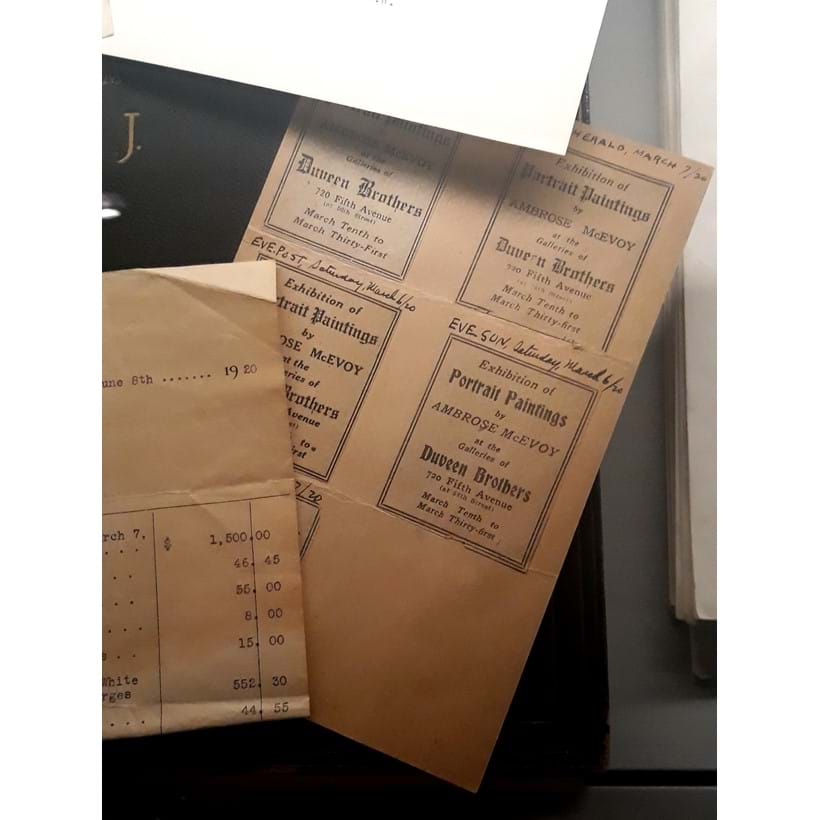 J.
Portrait Paintings
AMBROSE McEVOY
at the
Galleries of
Duveen Brothers
720 Fifth Avenue
(at 56th Street)
March Tenth to
March Thirty-First
HERALD, MARCH 7/20
Exhibition of
Portrait Paintings
by
AMBROSE McEVOY
at the
Galleries of
Duveen Brothers
720 Fifth Avenue
(at 56th Street)
March Tenth to
March Thirty-first
EVE.POST, Saturday, March 6/20
Exhibition of
trait Paintings
by
OSE McEVOY
at the
eries of
Brothers
Avenue
to
First
EVE SUN, Saturday, March 6/20
Exhibition of
Portrait Paintings
by
AMBROSE McEVOY
at the
Galleries of
Duveen Brothers
720 Fifth Avenue
(at 56th Street)
March Tenth to
March Thirty-first
7/20
une 8th ....... 1920
rch 7, $ 1,500.00
. . . 46. 45
55. 00
. . . 8. 00
. . 15. 00
White 552. 30
rges
. . . 44. 55